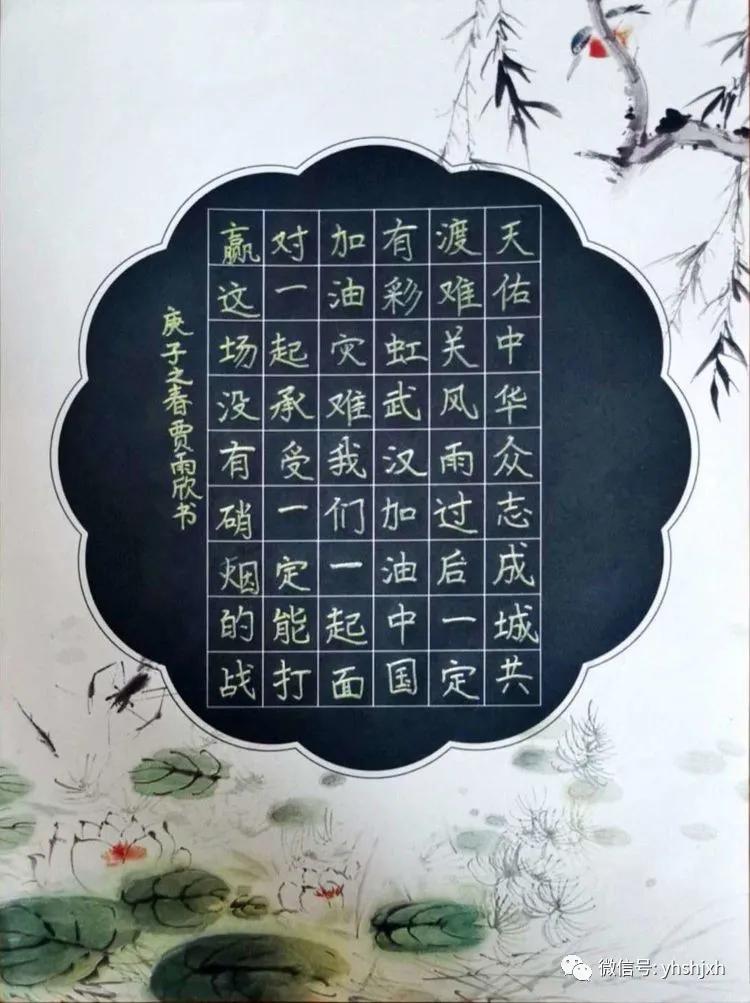 天佑中华众志成城共
渡难关风雨过后一定
有彩虹武汉加油中国
加油灾难我们一起面
对一起承受一定能打
赢这场没有硝烟的战
庚子之春贾雨欣书
微信号: yhshjxh